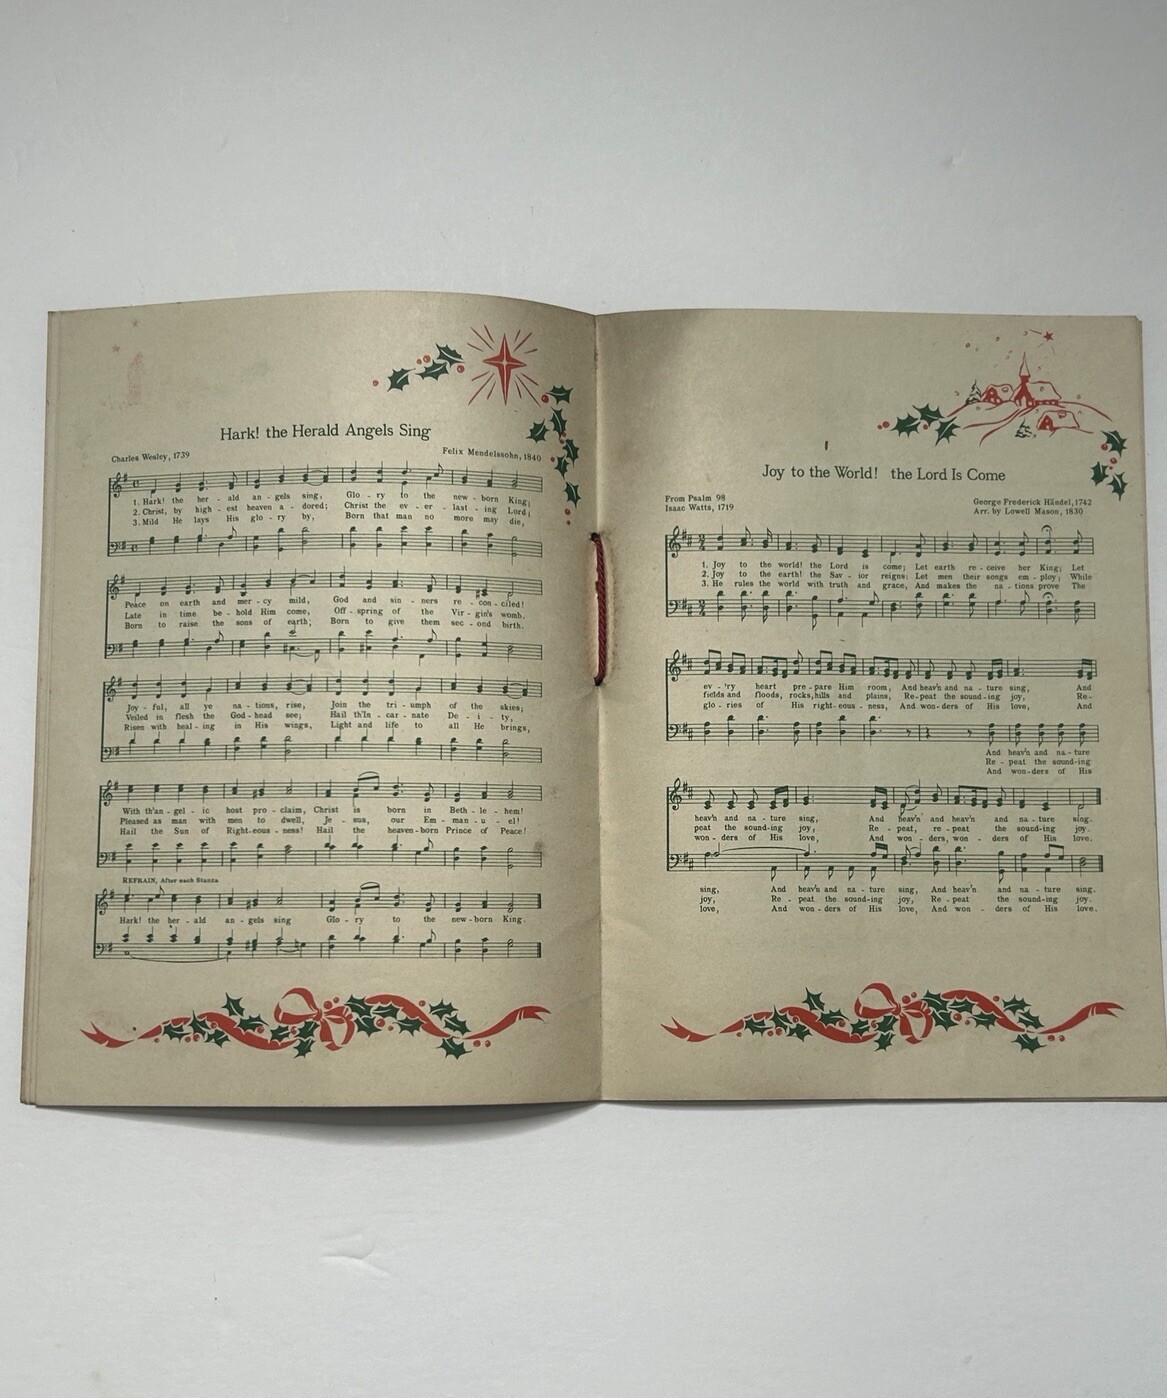 Hark! the Herald Angels Sing
Charles Wesley, 1739
Felix Mendelssohn, 1840
1. Hark! the her - ald an - gels sing, Glo - ry to the new - born King;
2. Christ, by high - est heaven a - dored; Christ the ev - er - last - ing Lord;
3. Mild He lays His glo - ry by, Born that man no more may die,
Peace on earth and mer - cy mild, God and sin - ners re - con - ciled!
Late in time be - hold Him come, Off - spring of the Vir - gin's womb.
Born to raise the sons of earth; Born to give them sec - ond birth.
Joy - ful, all ye na - tions, rise, Join the tri - umph of the skies;
Veiled in flesh the God - head see; Hail th'In - car - nate De - i - ty,
Risen with heal - ing in His wings, Light and life to all He brings,
With th'an - gel - ic host pro - claim, Christ is born in Beth - le - hem!
Pleased as man with men to dwell, Je - sus, our Em - man - u - el!
Hail the Sun of Right - eous - ness! Hail the heaven - born Prince of Peace!
REFRAIN, After each Stanza
Hark! the her - ald an - gels sing Glo - ry to the new - born King.
Joy to the World! the Lord Is Come
From Psalm 98
Isaac Watts, 1719
George Frederick Händel, 1742
Arr. by Lowell Mason, 1830
1. Joy to the world! the Lord is come; Let earth re - ceive her King; Let
2. Joy to the earth! the Sav - ior reigns; Let men their songs em - ploy; While
3. He rules the world with truth and grace, And makes the na - tions prove The
ev - 'ry heart pre - pare Him room, And heav'n and na - ture sing, And
fields and floods, rocks, hills and plains, Re - peat the sound - ing joy, Re -
glo - ries of His right - eous - ness, And won - ders of His love, And
And heav'n and na - ture
Re - peat the sound - ing
And won - ders of His
heav'n and na - ture sing, And heav'n and heav'n and na - ture sing.
peat the sound - ing joy, Re - peat, re - peat the sound - ing joy.
won - ders of His love, And won - ders, won - ders of His love.
sing, And heav'n and na - ture sing, And heav'n and na - ture sing.
joy, Re - peat the sound - ing joy, Re - peat the sound - ing joy.
love, And won - ders of His love, And won - ders of His love.